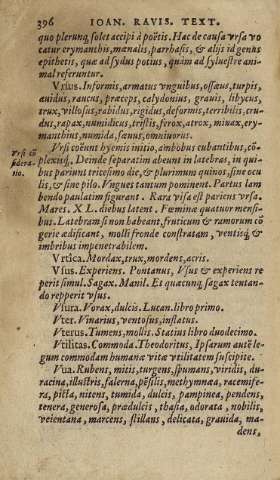 396 IOAN. RAVIS. TEXT.
quo plerunq; solet accipi à poëtis. Hac de causa vrsa vo
catur erymanthis, mænalis, parrhasis, & alijs id genus
epithetis, quæ ad sydus potius, quàm ad sylvestre ani-
mal referuntur.
Vrsus. Informis, armatus vnguibus, ossæus, turpis,
auidus, raucus, præceps, calydonius, grauis, libycus,
trux, villosus, rabidus, rigidus, deformis, terribilis, cru-
dus, rapax, numidicus, tristis, ferox, atrox, minax, ery-
manthinus, numida, sæuus, omniuorus.
Vrsi cō
fidera-
tio.
Vrsi coëunt hyemis initio, ambobus cubantibus, cō-
plexisq́;. Deinde separatim abeunt in latebras, in qui-
bus pariunt tricesimo die, & plurimum quinos, sine ocu
lis, & sine pilo. Vngues tantum pominent. Partus lam
bendo paulatim figurant. Rara visa est pariens vrsa.
Mares. X L. diebus latent. Fœminæ quatuor mensi-
bus. Latebram si non habeant, fruticum & ramorum cō
gerie ædificant, molli fronde constratam, ventisq́; &
imbribus impenetrabilem.
Vrtica. Mordax, trux, mordens, acris.
Vsus. Experiens. Pontanus, Vsus & experiens re
perit simul. Sagax. Manil. Et quæcunq; sagax tentan-
do repperit vsus.
Vsura. Vorax, dulcis. Lucan. libro primo.
Vter. Vinarius, ventosus, inflatus.
Vterus. Tumens, mollis. Statius libro duodecimo.
Vtilitas. Commoda. Theodoritus, Ipsarum autē le-
gum commodam humanæ vitæ vtilitatem suscipite.
Vua. Rubens, mitis, turgens, spumans, viridis, du-
racina, illustris, falerna, pēsilis, methymnæa, racemife-
ra, picta, nitens, tumida, dulcis, pampinea, pendens,
tenera, generosa, prædulcis, thasia, odorata, nobilis,
veientana, marcens, stillans, delicata, grauida, ma-
dens,